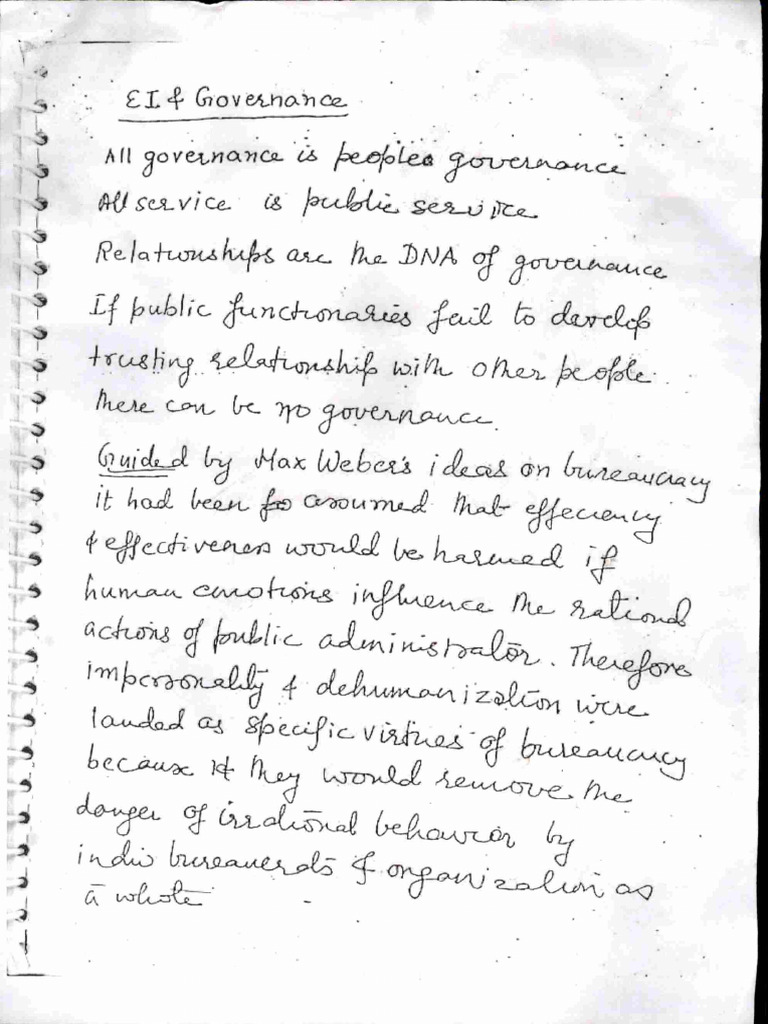 EI & Governance
All governance is peoples governance
All service is public service
Relationships are the DNA of governance
If public functionaries fail to develop
trusting relationship with other people
there can be no governance.
Guided by Max Weber's ideas on bureaucracy
it had been assumed that effeciency
& effectiveness would be harmed if
human emotions influence the rational
actions of public administrator. Therefore
impersonality & dehumanization were
lauded as specific virtues of bureaucracy
because they would remove the
danger of irrational behavior by
indiv bureaucrats & organization as
a whole